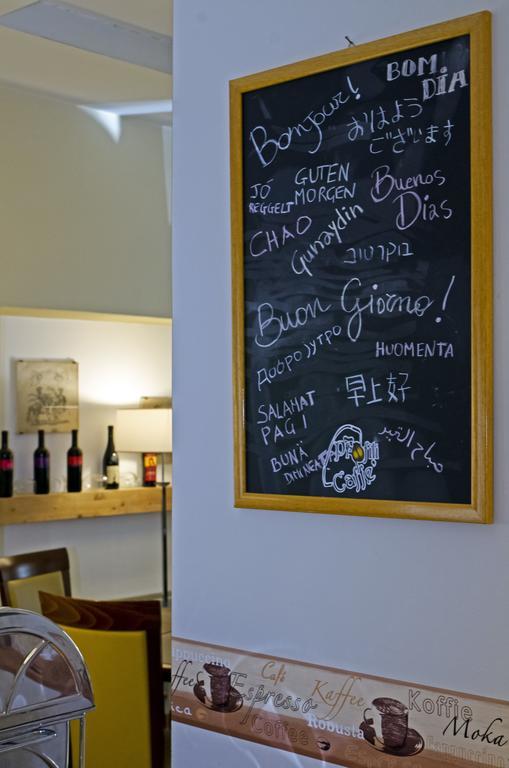 BOM
DIA
Bonjour!
おはよう
ございます
JÓ
REGGELT
GUTEN
MORGEN
Buenos
Dias
CHAO
Gunaydin
בוקר טוב
Buon Giorno!
ДОБРО ЈУТРО
HUOMENTA
SALAHAT
PAGI
早上好
BUNĂ
صباح الخير
Profili
Caffe
Cappuccino
Café
Kaffee
Koffie
Espresso
Coffee
Robusta
Moka